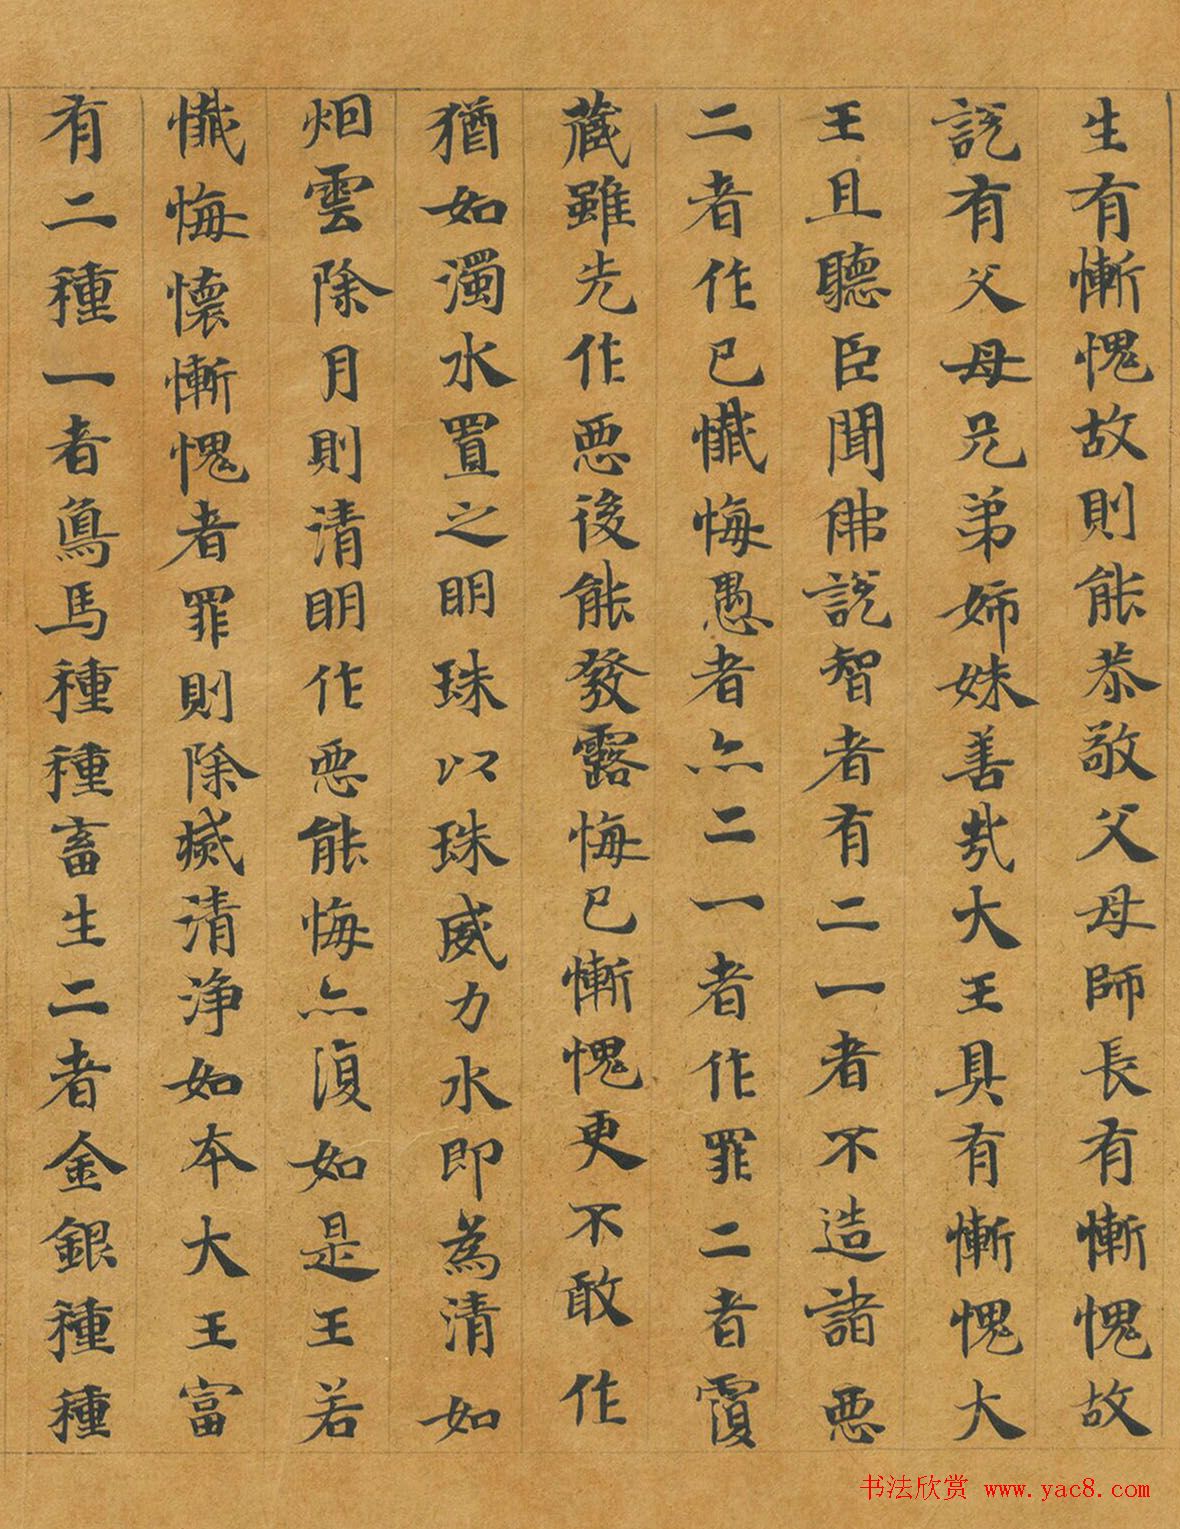 生有慚愧故則能恭敬父母師長有慚愧故
説有父母兄弟姉妹善㢤大王具有慚愧大
王且聽臣聞佛説智者有二一者不造諸惡
二者作已懴悔愚者亦二一者作罪二者覆
藏雖先作惡後能發露悔已慚愧更不敢作
猶如濁水置之明珠以珠威力水即為清如
烟雲除月則清明作惡能悔亦復如是王若
懴悔懷慚愧者罪則除滅清淨如本大王富
有二種一者鳥馬種種畜生二者金銀種種
书法欣赏 www.yac8.com